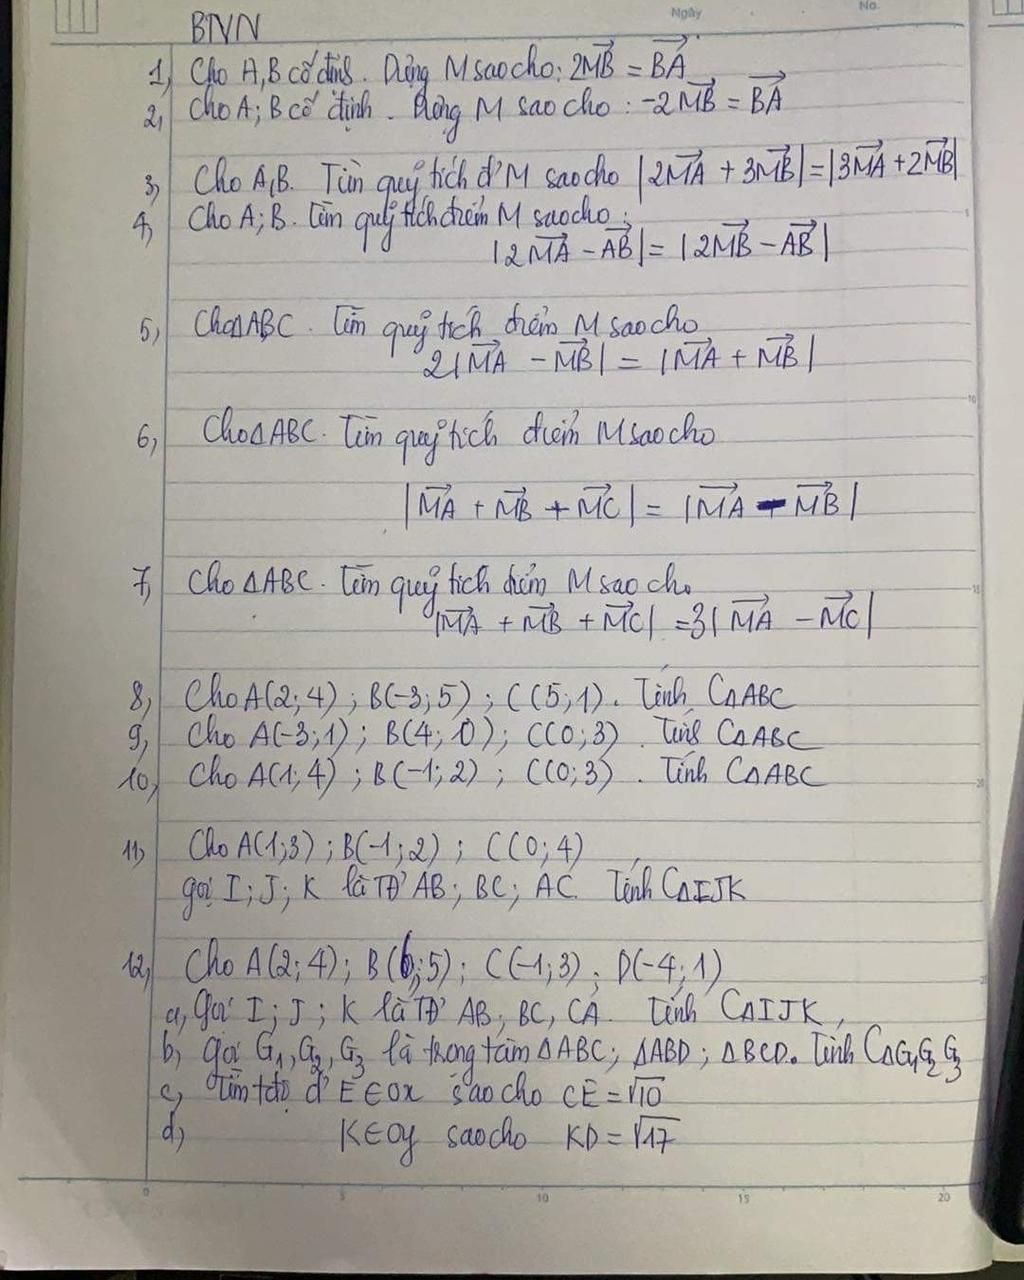 Ngày
No.
BTVN
1, Cho A,B cố định. Dựng M sao cho: 2MB = BA
2, Cho A; B cố định. Dựng M sao cho: -2MB = BA
3, Cho A,B. Tìm quỹ tích đ' M sao cho |2MA + 3MB| = |3MA + 2MB|
4, Cho A; B. Tìm quỹ tích điểm M sao cho:
|2MA - AB| = |2MB - AB|
5, Cho ΔABC. Tìm quỹ tích điểm M sao cho
2|MA - MB| = |MA + MB|
6, Cho ΔABC. Tìm quỹ tích điểm M sao cho
|MA + MB + MC| = |MA - MB|
7, Cho ΔABC. Tìm quỹ tích điểm M sao cho
|MA + MB + MC| = 3|MA - MC|
8, Cho A(2; 4); B(-3; 5); C(5; 1). Tính CΔABC
9, Cho A(-3; 1); B(4; 0); C(0; 3). Tính CΔABC
10, Cho A(1; 4); B(-1; 2); C(0; 3). Tính CΔABC
11, Cho A(1; 3); B(-1; 2); C(0; 4)
gọi I; J; K là TĐ' AB; BC; AC. Tính CΔIJK
12, Cho A(2; 4); B(6; 5); C(-1; 3), D(-4; 1)
a, Gọi I; J; K là TĐ' AB, BC, CA. Tính CΔIJK,
b, gọi G1, G2, G3 là trọng tâm ΔABC; ΔABD; ΔBCD. Tính CΔG1G2G3
c, Tìm tđộ đ' E ∈ Ox sao cho CE = √10
d, K ∈ Oy sao cho KD = √17
0 5 10 15 20